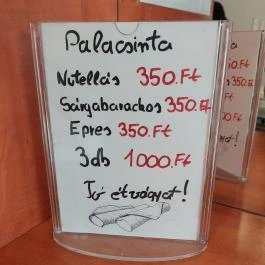 Palacsinta
Nutellás 350.Ft
Sárgabarackos 350.Ft
Epres 350.Ft
3db 1000.Ft
Jó étvágyat!